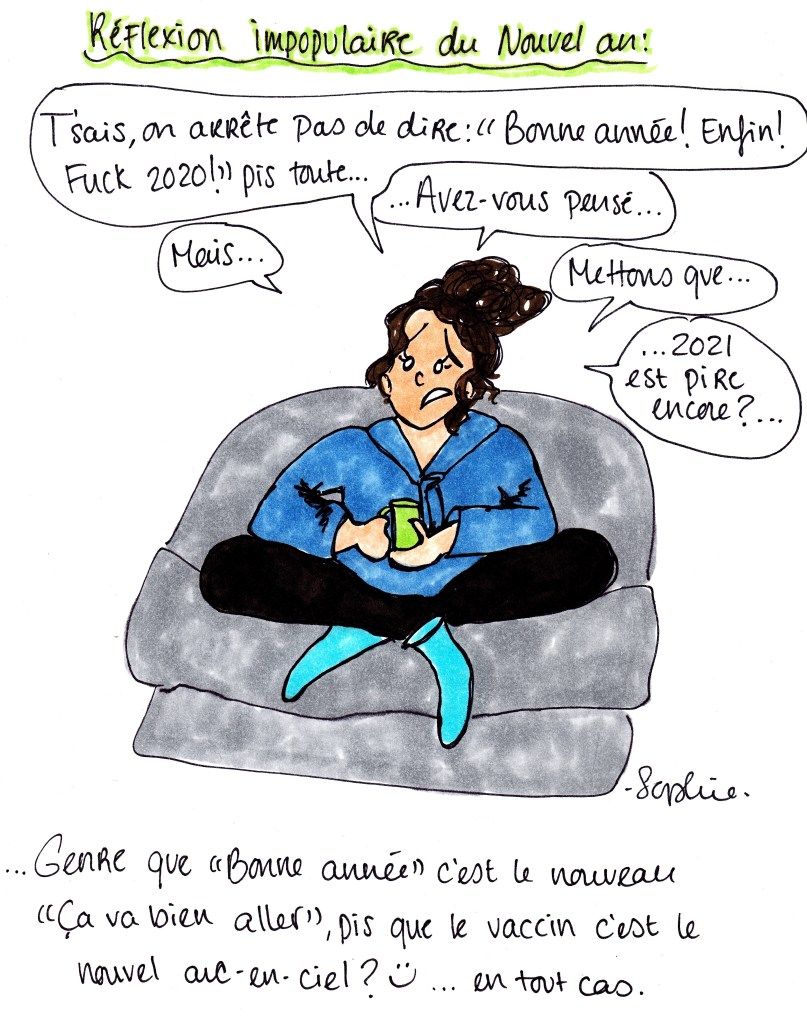 Réflexion impopulaire du Nouvel an:
T'sais, on arrête pas de dire: "Bonne année! Enfin!
Fuck 2020!" pis toute...
Mais...
...Avez-vous pensé...
Mettons que...
...2021
est pire
encore?...
-Sophie.
...Genre que "Bonne année" c'est le nouveau
"Ça va bien aller", pis que le vaccin c'est le
nouvel arc-en-ciel? ... en tout cas.